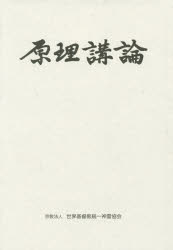 原理講論
宗教法人 世界基督教統一神霊協会